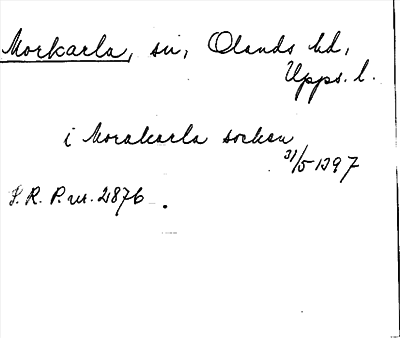 Morkarla, sn, Olands hd,
Upps. l.
i Morakarla sokn
31/5 1397
S. R. P. nr. 2876.